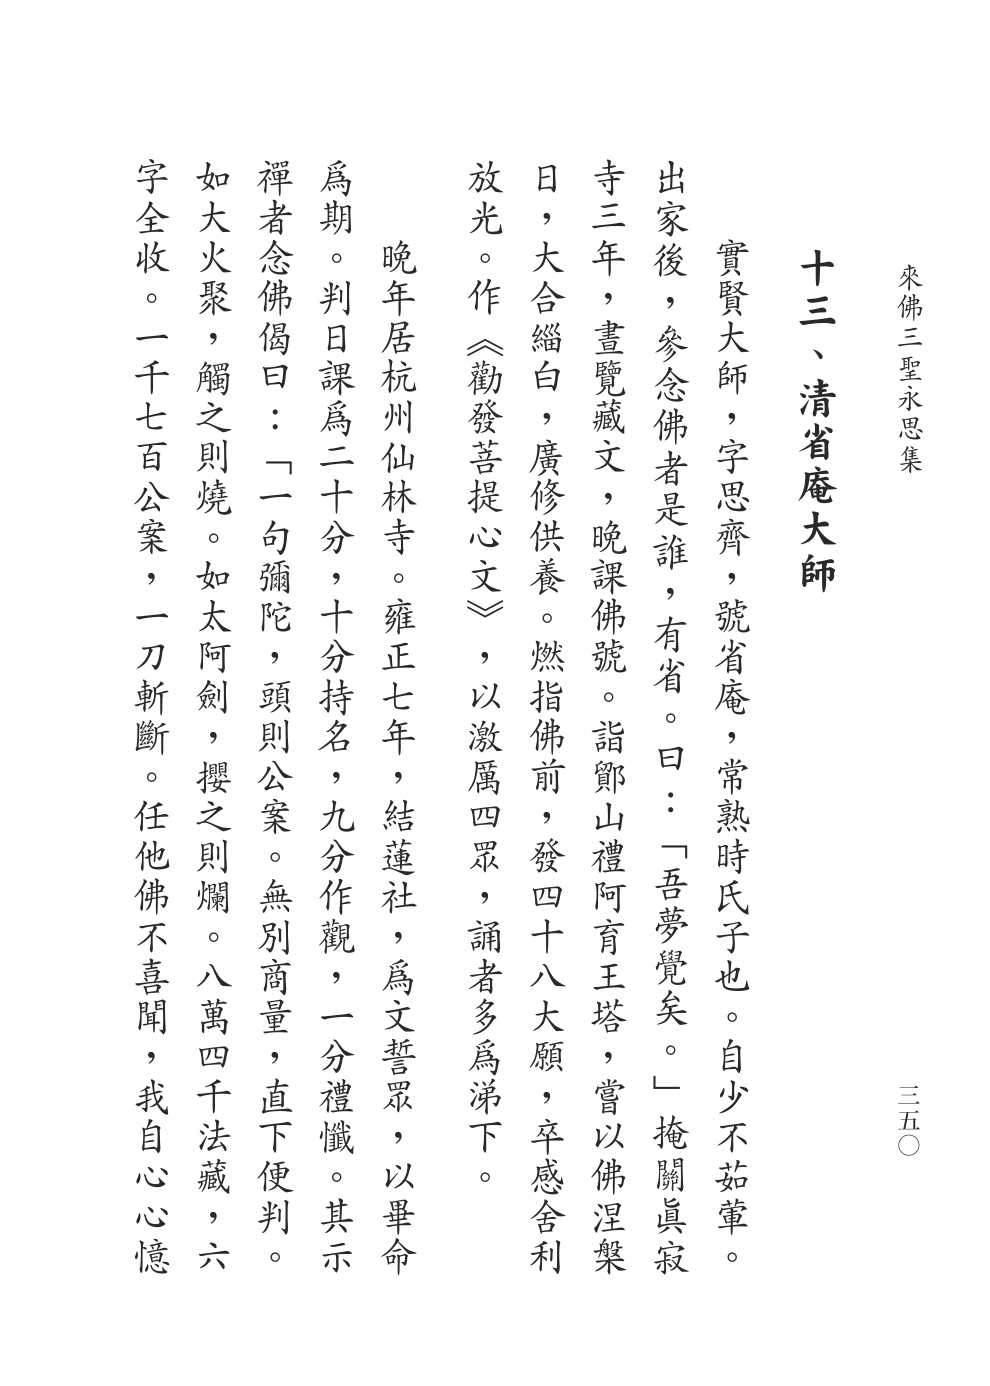 來佛三聖永思集
三五〇
十三、清省庵大師
實賢大師，字思齊，號省庵，常熟時氏子也。自少不茹葷。
出家後，參念佛者是誰，有省。曰：「吾夢覺矣。」掩關眞寂
寺三年，晝覽藏文，晚課佛號。詣鄮山禮阿育王塔，嘗以佛涅槃
日，大合緇白，廣修供養。燃指佛前，發四十八大願，卒感舍利
放光。作《勸發菩提心文》，以激厲四眾，誦者多爲涕下。
晚年居杭州仙林寺。雍正七年，結蓮社，爲文誓眾，以畢命
爲期。判日課爲二十分，十分持名，九分作觀，一分禮懺。其示
禪者念佛偈曰：「一句彌陀，頭則公案。無別商量，直下便判。
如大火聚，觸之則燒。如太阿劍，攖之則爛。八萬四千法藏，六
字全收。一千七百公案，一刀斬斷。任他佛不喜聞，我自心心憶